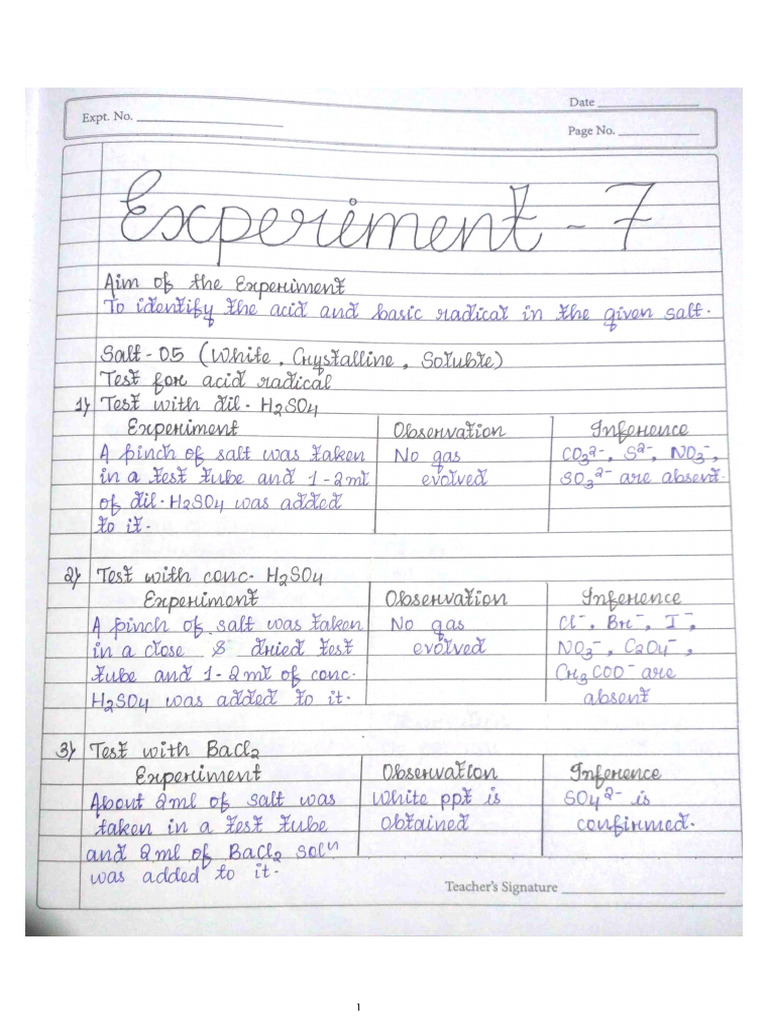 Date
Expt. No.
Page No.
Experiment - 7
Aim of the Experiment
To identify the acid and basic radical in the given salt.
Salt - 05 (White, Crystalline, Soluble)
Test for acid radical
1) Test with dil. H2SO4
Experiment Observation Inference
A pinch of salt was taken No gas CO3²⁻, S²⁻, NO3⁻,
in a test tube and 1-2ml evolved SO3²⁻ are absent.
of dil. H2SO4 was added
to it.
2) Test with conc. H2SO4
Experiment Observation Inference
A pinch of salt was taken No gas Cl⁻, Br⁻, I⁻,
in a close & dried test evolved NO3⁻, C2O4⁻,
tube and 1-2ml of conc. CH3COO⁻ are
H2SO4 was added to it. absent
3) Test with BaCl2
Experiment Observation Inference
About 2ml of salt was White ppt is SO4²⁻ is
taken in a test tube obtained confirmed.
and 2ml of BaCl2 solⁿ
was added to it.
Teacher's Signature
1